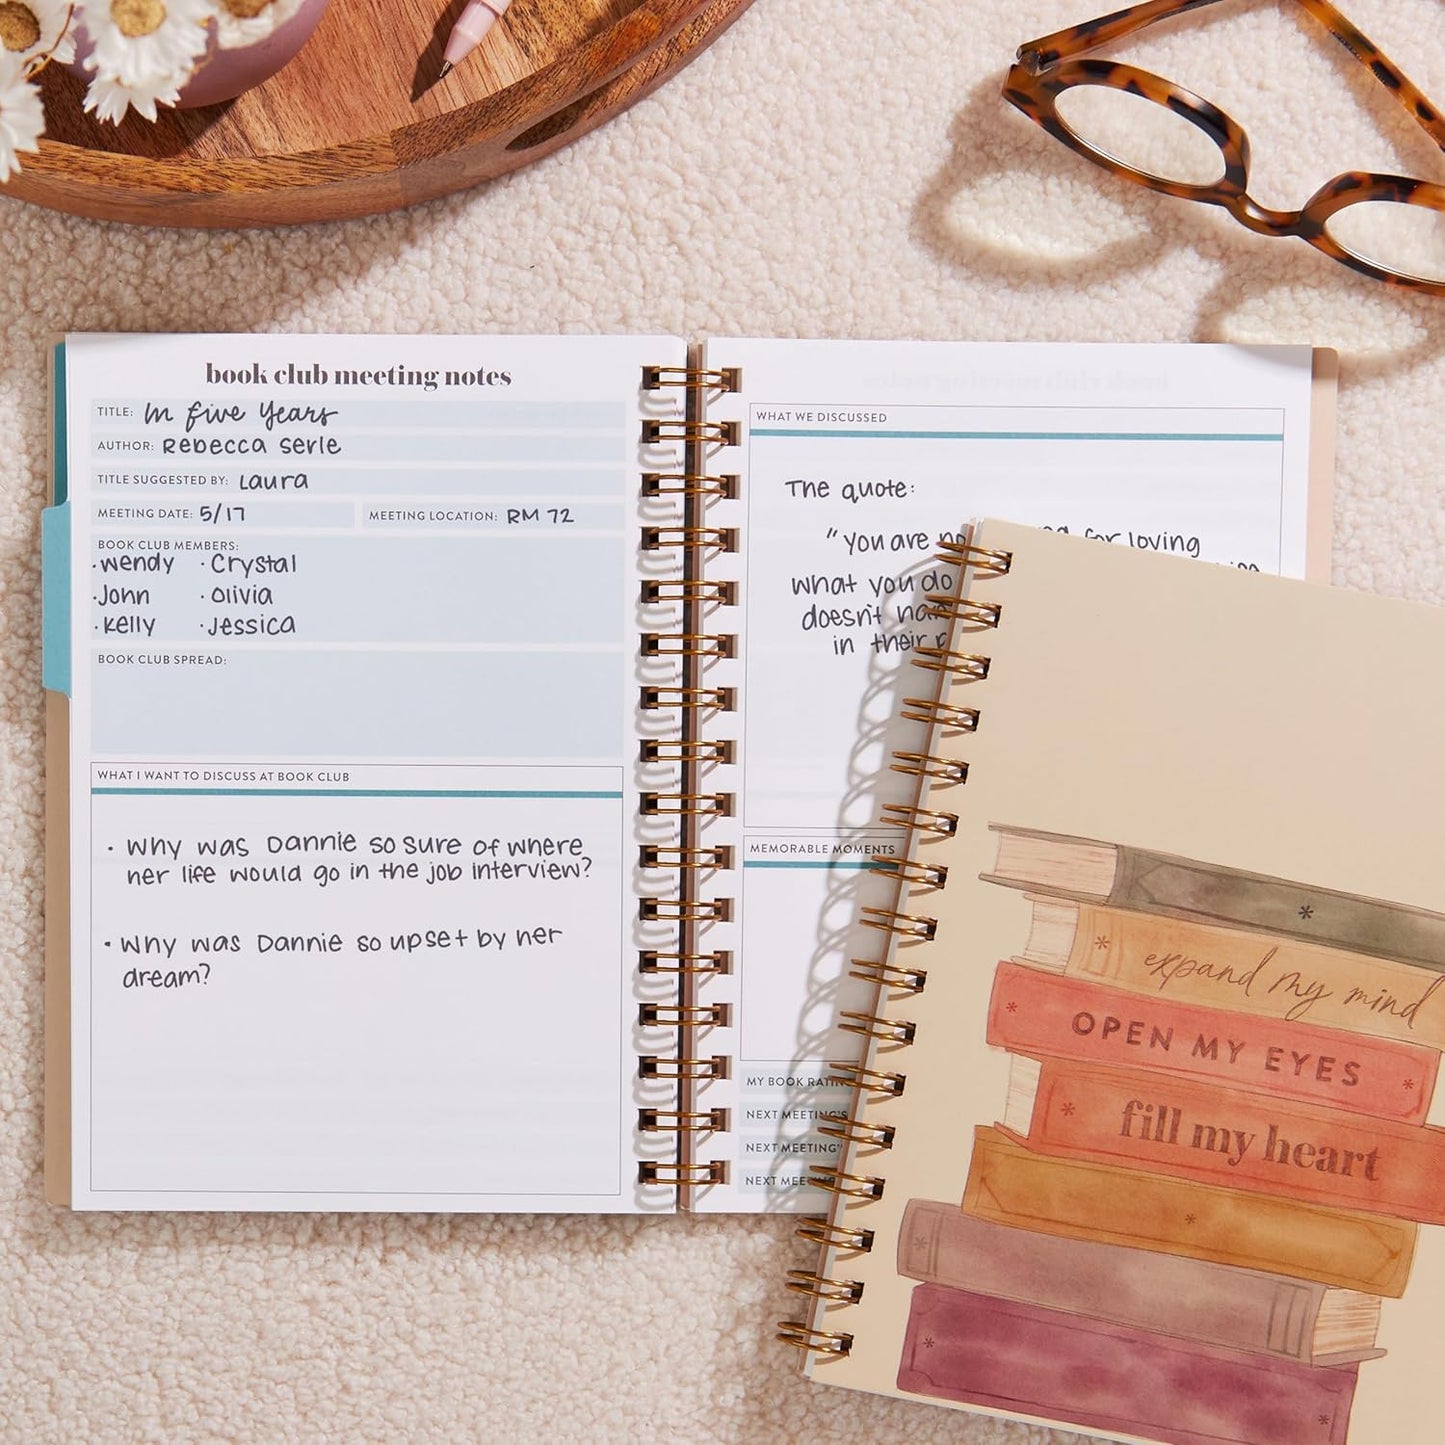 book club meeting notes
TITLE: In Five Years
AUTHOR: Rebecca Serle
TITLE SUGGESTED BY: Laura
MEETING DATE: 5/17 MEETING LOCATION: RM 72
BOOK CLUB MEMBERS:
· Wendy · Crystal
· John · Olivia
· Kelly · Jessica
BOOK CLUB SPREAD:
WHAT I WANT TO DISCUSS AT BOOK CLUB
· Why was Dannie so sure of where
her life would go in the job interview?
· Why was Dannie so upset by her
dream?
WHAT WE DISCUSSED
The quote:
"You are for loving
what you do
doesn't
in their
MEMORABLE MOMENTS
MY BOOK RATING
NEXT MEETING'S
NEXT MEETING'
NEXT
expand my mind
OPEN MY EYES
fill my heart